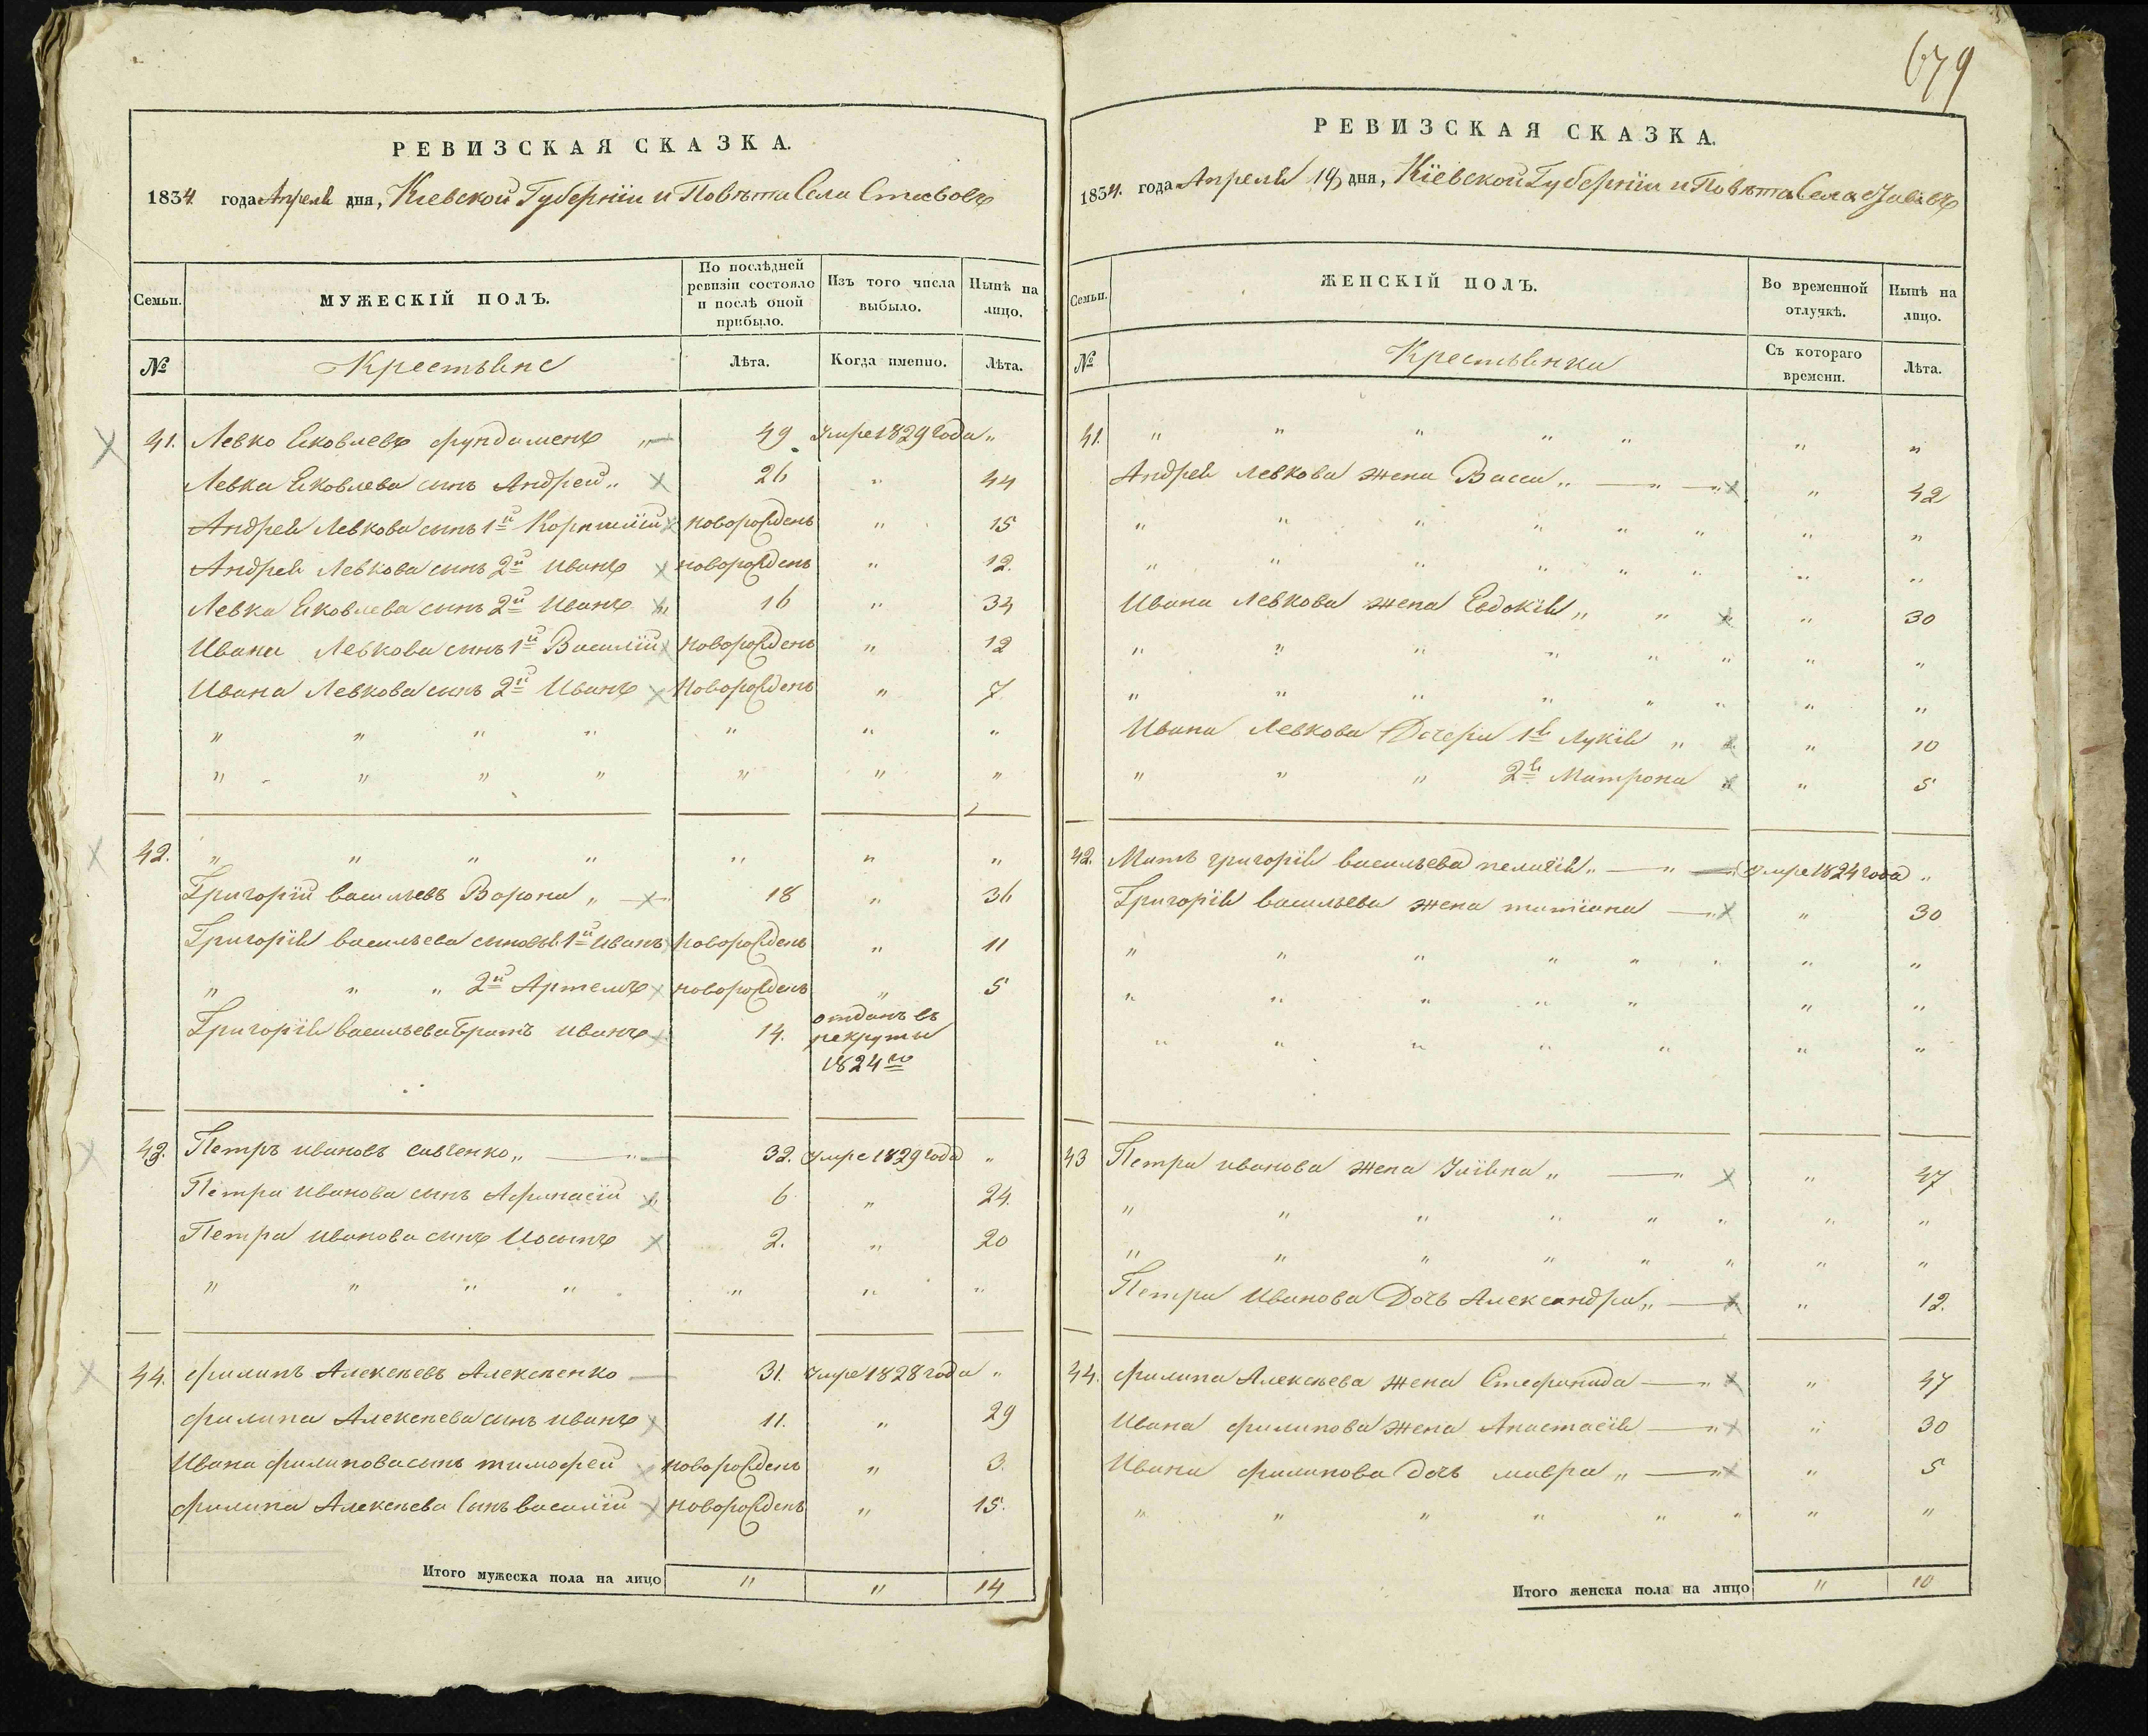 679
РЕВИЗСКАЯ СКАЗКА.
1834 года Апреля дня, Кіевской Губерніи и Повѣта Села Ставовъ
Семьи.
МУЖЕСКІЙ ПОЛЪ.
По послѣдней ревизіи состояло и послѣ оной прибыло.
Изъ того числа выбыло.
Нынѣ на лицо.
№ Крестьяне Лѣта. Когда именно. Лѣта.
41. Левко Яковлевъ фундаменъ „ 49 Умре 1829 года „
Левка Яковлева сынъ Андрей „ 26 „ 44
Андрея Левкова сынъ 1й Корнилій новорожденъ „ 15
Андрея Левкова сынъ 2й Иванъ новорожденъ „ 12.
Левка Яковлева сынъ 2й Иванъ „ 16 „ 34
Ивана Левкова сынъ 1й Василій новорожденъ „ 12
Ивана Левкова сынъ 2й Иванъ новорожденъ „ 7.
„ „ „ „ „ „ „
„ „ „ „ „ „ „
42. „ „ „ „ „ „ „
Григорій васильевъ Ворона „ 18 „ 36
Григорія васильева сыновья 1й Иванъ новорожденъ „ 11
„ „ „ 2й Артемъ новорожденъ „ 5
Григорія васильева братъ иванъ 14. отданъ въ
рекруты
1824го
43. Петръ ивановъ савченко „ 32. Умре 1829 года „
Петра Иванова сынъ Афанасій „ 6 „ 24.
Петра Иванова сынъ Иосипъ 2. „ 20
„ „ „ „ „ „ „
44. филипъ Алексѣевъ Алексѣенко 31. Умре 1828 года „
филипа Алексѣева сынъ иванъ 11. „ 29
Ивана филипова сынъ тимофей новорожденъ „ 3.
филипа Алексѣева Сынъ василій новорожденъ „ 15.
Итого мужеска пола на лицо „ „ 14
РЕВИЗСКАЯ СКАЗКА.
1834. года Апреля 19 дня, Кіевской Губерніи и Повѣта Села
Семьи.
ЖЕНСКІЙ ПОЛЪ.
Во временной отлучкѣ.
Нынѣ на лицо.
№ Крестьянки Съ котораго времени. Лѣта.
41. „ „ „ „ „ „ „
Андрея Левкова жена Васса „ „ „ „ 42
„ „ „ „ „ „ „ „
„ „ „ „ „ „ „ „
Ивана Левкова жена Евдокія „ „ „ 30
„ „ „ „ „ „ „ „
„ „ „ „ „ „ „ „
Ивана Левкова Дочери 1я Лукія „ „ 10
„ „ „ 2я Матрона „ „ 5
42. Мать григорія васильева пелагія „ „ Умре 1824 года „
Григорія васильева жена татіана „ „ 30
„ „ „ „ „ „ „ „
„ „ „ „ „ „ „
„ „ „ „ „ „ „
43 Петра иванова жена Уліяна „ „ „ 47
„ „ „ „ „ „ „ „
„ „ „ „ „ „ „ „
Петра Иванова Дочь Александра „ „ 12.
44. филипа Алексѣева жена Стефанида „ „ 47
Ивана филипова жена Анастасія „ „ 30
Ивана филипова дочь мавра „ „ „ 5
„ „ „ „ „ „ „ „
Итого женска пола на лицо „ 10